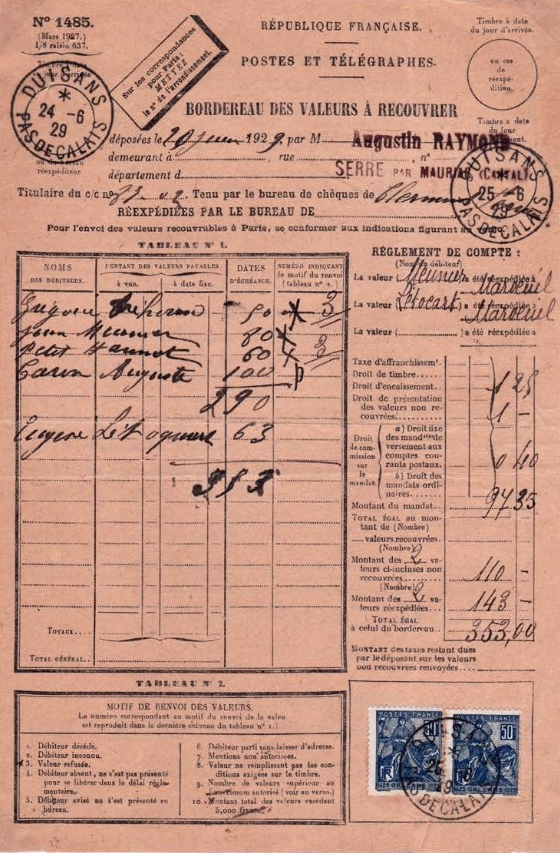 N° 1485.
(Mars 1927.)
1/8 raisin 637.
Sur les correspondances
pour Paris:
METTEZ
le n° de l'arrondissement.
RÉPUBLIQUE FRANÇAISE.
POSTES ET TÉLÉGRAPHES.
Timbre à date
du jour d'arrivée.
en cas
de
réexpé-
dition.
DUISANS
24 -6
29
PAS DE CALAIS
BORDEREAU DES VALEURS À RECOUVRER
Timbre à date
déposées le 20 juin 1929. par M Augustin RAYMOND
demeurant à , rue n°
département d SERRE PAR MAURIAC (CANTAL)
DUISANS
25 -6
29
PAS DE CALAIS
ou du bureau
réexpéditeur
Titulaire du c/c n° Tenu par le bureau de chèques de
RÉEXPÉDIÉES PAR LE BUREAU DE
Pour l'envoi des valeurs recouvrables à Paris, se conformer aux indications figurant au
TABLEAU N° 1.
NOMS
DES DÉBITEURS.
MONTANT DES VALEURS PAYABLES
à vue.
à date fixe.
DATES
D'ÉCHÉANCE.
NUMÉRO INDIQUANT
le motif du renvoi
(tableau n° 2.)
Grégoire 50 3
Jean Meunier 80
Petit 60 3
Caron Auguste 100
290
Eugène 63
353
TOTAUX
TOTAL GÉNÉRAL
RÈGLEMENT DE COMPTE :
(Nom du débiteur)
La valeur ( Meunier ) a été réexpédiée à Marœuil
La valeur ( Letocart ) a été réexpédiée à Marœuil
La valeur ( ) a été réexpédiée à
Taxe d'affranchissemt.
Droit de timbre
Droit d'encaissement 1 25
Droit de présentation
des valeurs non re-
couvrées 1 -
Droit
de com-
mission
sur
le
mandat.
a) Droit fixe
des mandats de
versement aux
comptes cou-
rants postaux. 0 40
b) Droit des
mandats ordi-
naires
Montant du mandat 97 35
TOTAL ÉGAL au mon-
tant de (Nombre)
valeurs recouvrées.
(Nombre)
Montant des 2 va-
leurs ci-incluses non
recouvrées 110 -
(Nombre)
Montant des 2 va-
leurs réexpédiées 143 -
TOTAL ÉGAL
à celui du bordereau 353,00
MONTANT des taxes restant dues
par le déposant sur les valeurs
non recouvrées renvoyées
TABLEAU N° 2.
MOTIF DE RENVOI DES VALEURS.
Le numéro correspondant au motif du renvoi de la valeur
est reproduit dans la dernière colonne du tableau n° 1.)
1. Débiteur décédé.
2. Débiteur inconnu.
3. Valeur refusée.
4. Débiteur absent, ne s'est pas présenté
pour se libérer dans le délai régle-
mentaire.
5. Débiteur avisé ne s'est présenté au
bureau.
6. Débiteur parti sans laisser d'adresse.
7. Mentions non autorisées.
8. Valeur ne remplissant pas les con-
ditions exigées sur le timbre.
9. Nombre de valeurs supérieur au
maximum autorisé (voir au verso).
10. Montant total des valeurs excédant
5,000 francs.
POSTES FRANCE
50c
RF
POSTES FRANCE
50c
DUISANS
25 -6
29
PAS DE CALAIS